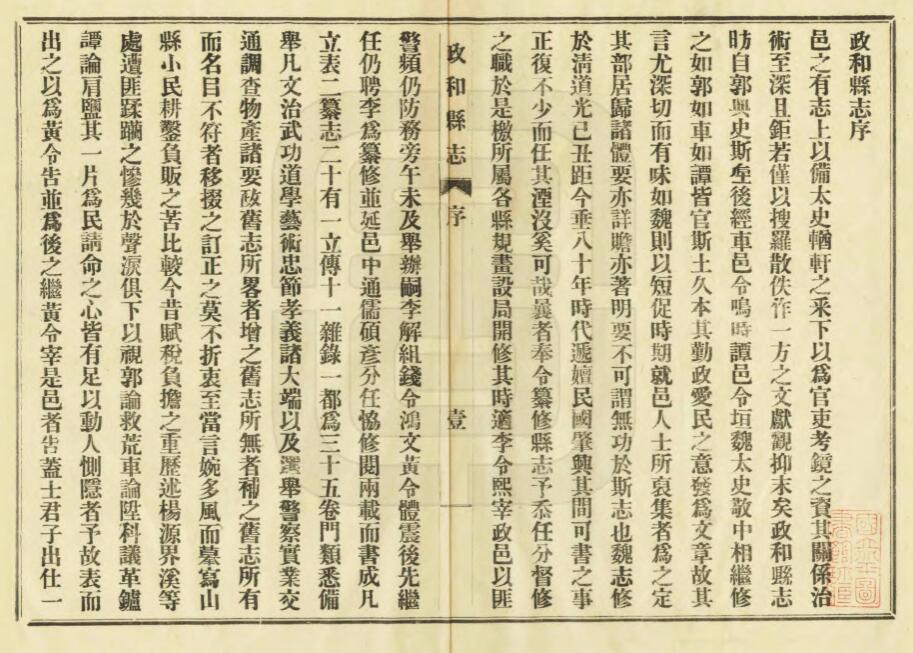 政和縣志序
邑之有志上以備太史輶軒之釆下以爲官吏考鏡之資其關係治
術至深且鉅若僅以搜羅散佚作一方之文獻觀抑末矣政和縣志
昉自郭輿史斯垕後經車邑令鳴時譚邑令垣魏太史敬中相繼修
之如郭如車如譚皆官斯土久本其勤政愛民之意發爲文章故其
言尤深切而有味如魏則以短促時期就邑人士所裒集者爲之定
其部居歸諸體要亦詳贍亦著明要不可謂無功於斯志也魏志修
於淸道光己丑距今垂八十年時代遞嬗民國肇興其間可書之事
正復不少而任其湮沒奚可哉曩者奉令纂修縣志予忝任分督修
之職於是檄所屬各縣規畫設局開修其時適李令熙宰政邑以匪
政和縣志
序
壹
警頻仍防務旁午未及舉辦嗣李解組錢令鴻文黃令體震後先繼
任仍聘李爲纂修並延邑中通儒碩彥分任恊修閱兩載而書成凡
立表二纂志二十有一立傳十一雜錄一都爲三十五卷門類悉備
舉凡文治武功道學藝術忠節孝義諸大端以及選舉警察實業交
通調查物產諸要政舊志所畧者增之舊志所無者補之舊志所有
而名目不符者移掇之訂正之莫不折衷至當言婉多風而摹寫山
縣小民耕鑿負販之苦比較今昔賦稅負擔之重歷述楊源界溪等
處遭匪蹂躪之慘幾於聲淚俱下以視郭論救荒車論陞科議革鑪
譚論肩鹽其一片爲民請命之心皆有足以動人惻隱者予故表而
出之以爲黃令告並爲後之繼黃令宰是邑者告蓋士君子出仕一